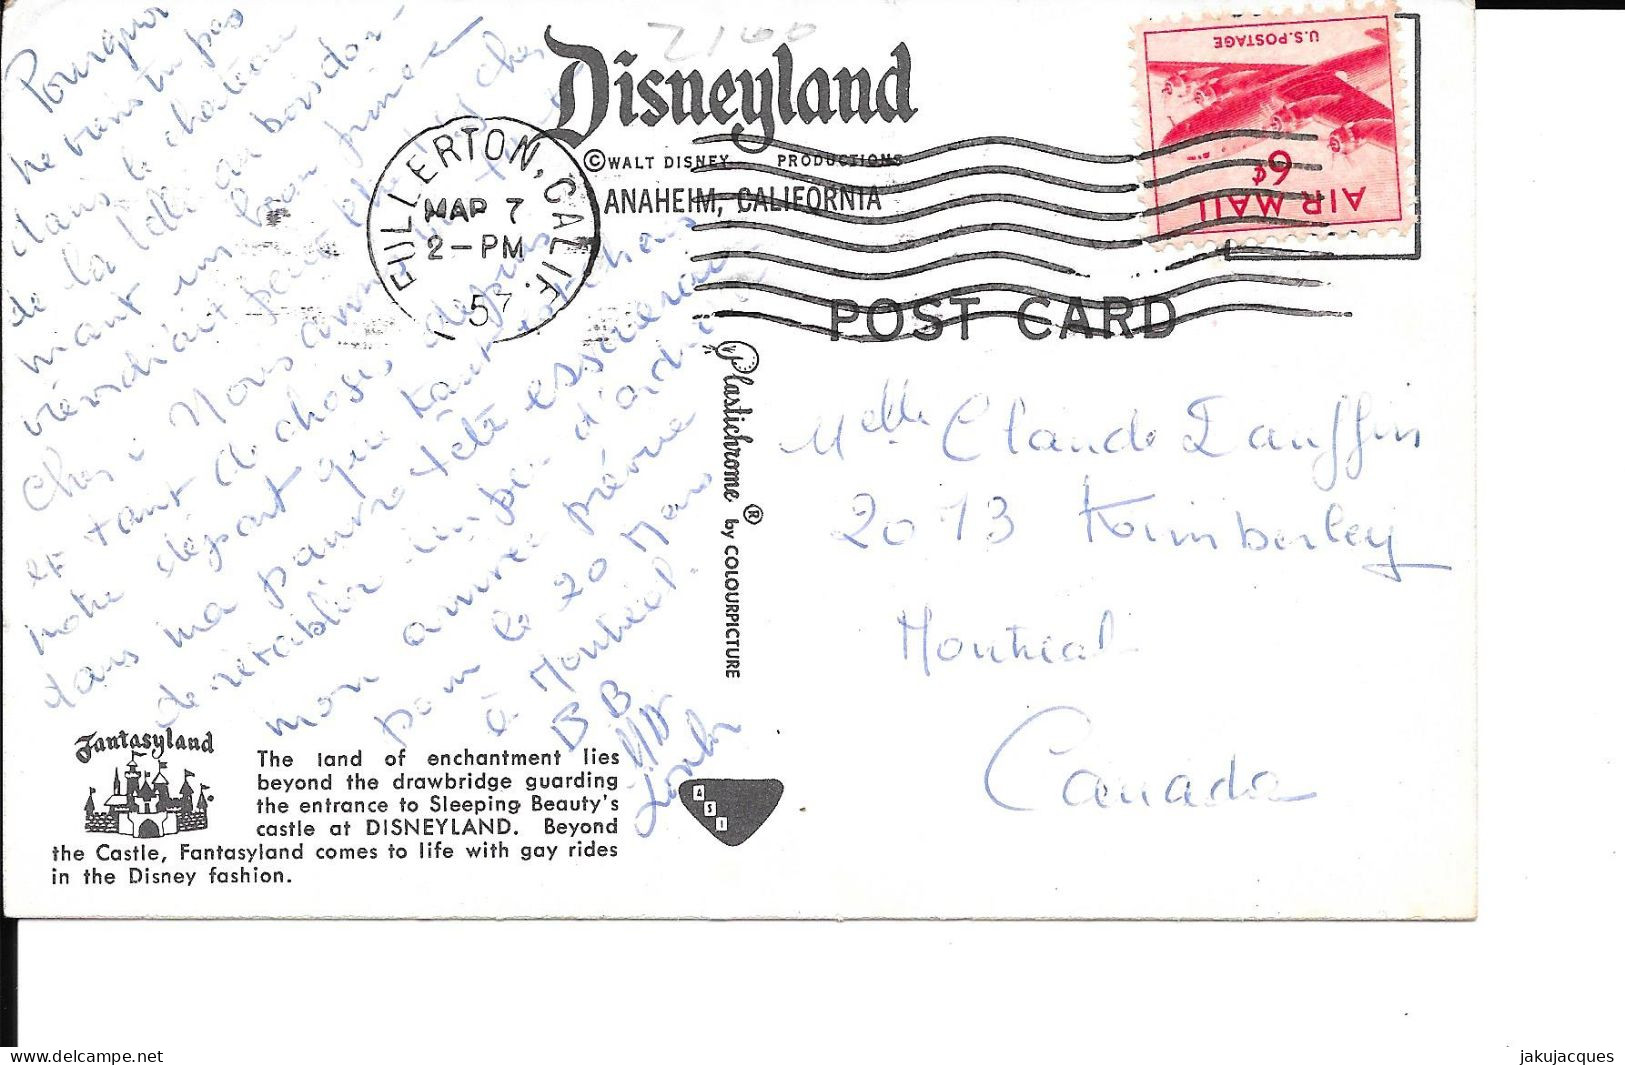 Pourquoi
ne viens tu pas
dans le château
de la belle au bois dor-
mant un beau prince
viendrait peut être te cher
cher. Nous avons
et tant de choses depuis
notre départ que tout est
dans ma pauvre tête essaierai
de rétablir un peu d'ordre
mon arrivée prévue
pour le 20 Mars
à Montréal.
BB
2160
Disneyland
© WALT DISNEY PRODUCTIONS
ANAHEIM, CALIFORNIA
FULLERTON, CALIF.
MAR 7
2-PM
57
U.S. POSTAGE
6¢
AIR MAIL
POST CARD
Plastichrome ® by COLOURPICTURE
Melle Claude
2073 Kimberley
Montreal
Canada
Fantasyland
The land of enchantment lies
beyond the drawbridge guarding
the entrance to Sleeping Beauty's
castle at DISNEYLAND. Beyond
the Castle, Fantasyland comes to life with gay rides
in the Disney fashion.
ASI
delcampe.net
jakujacques